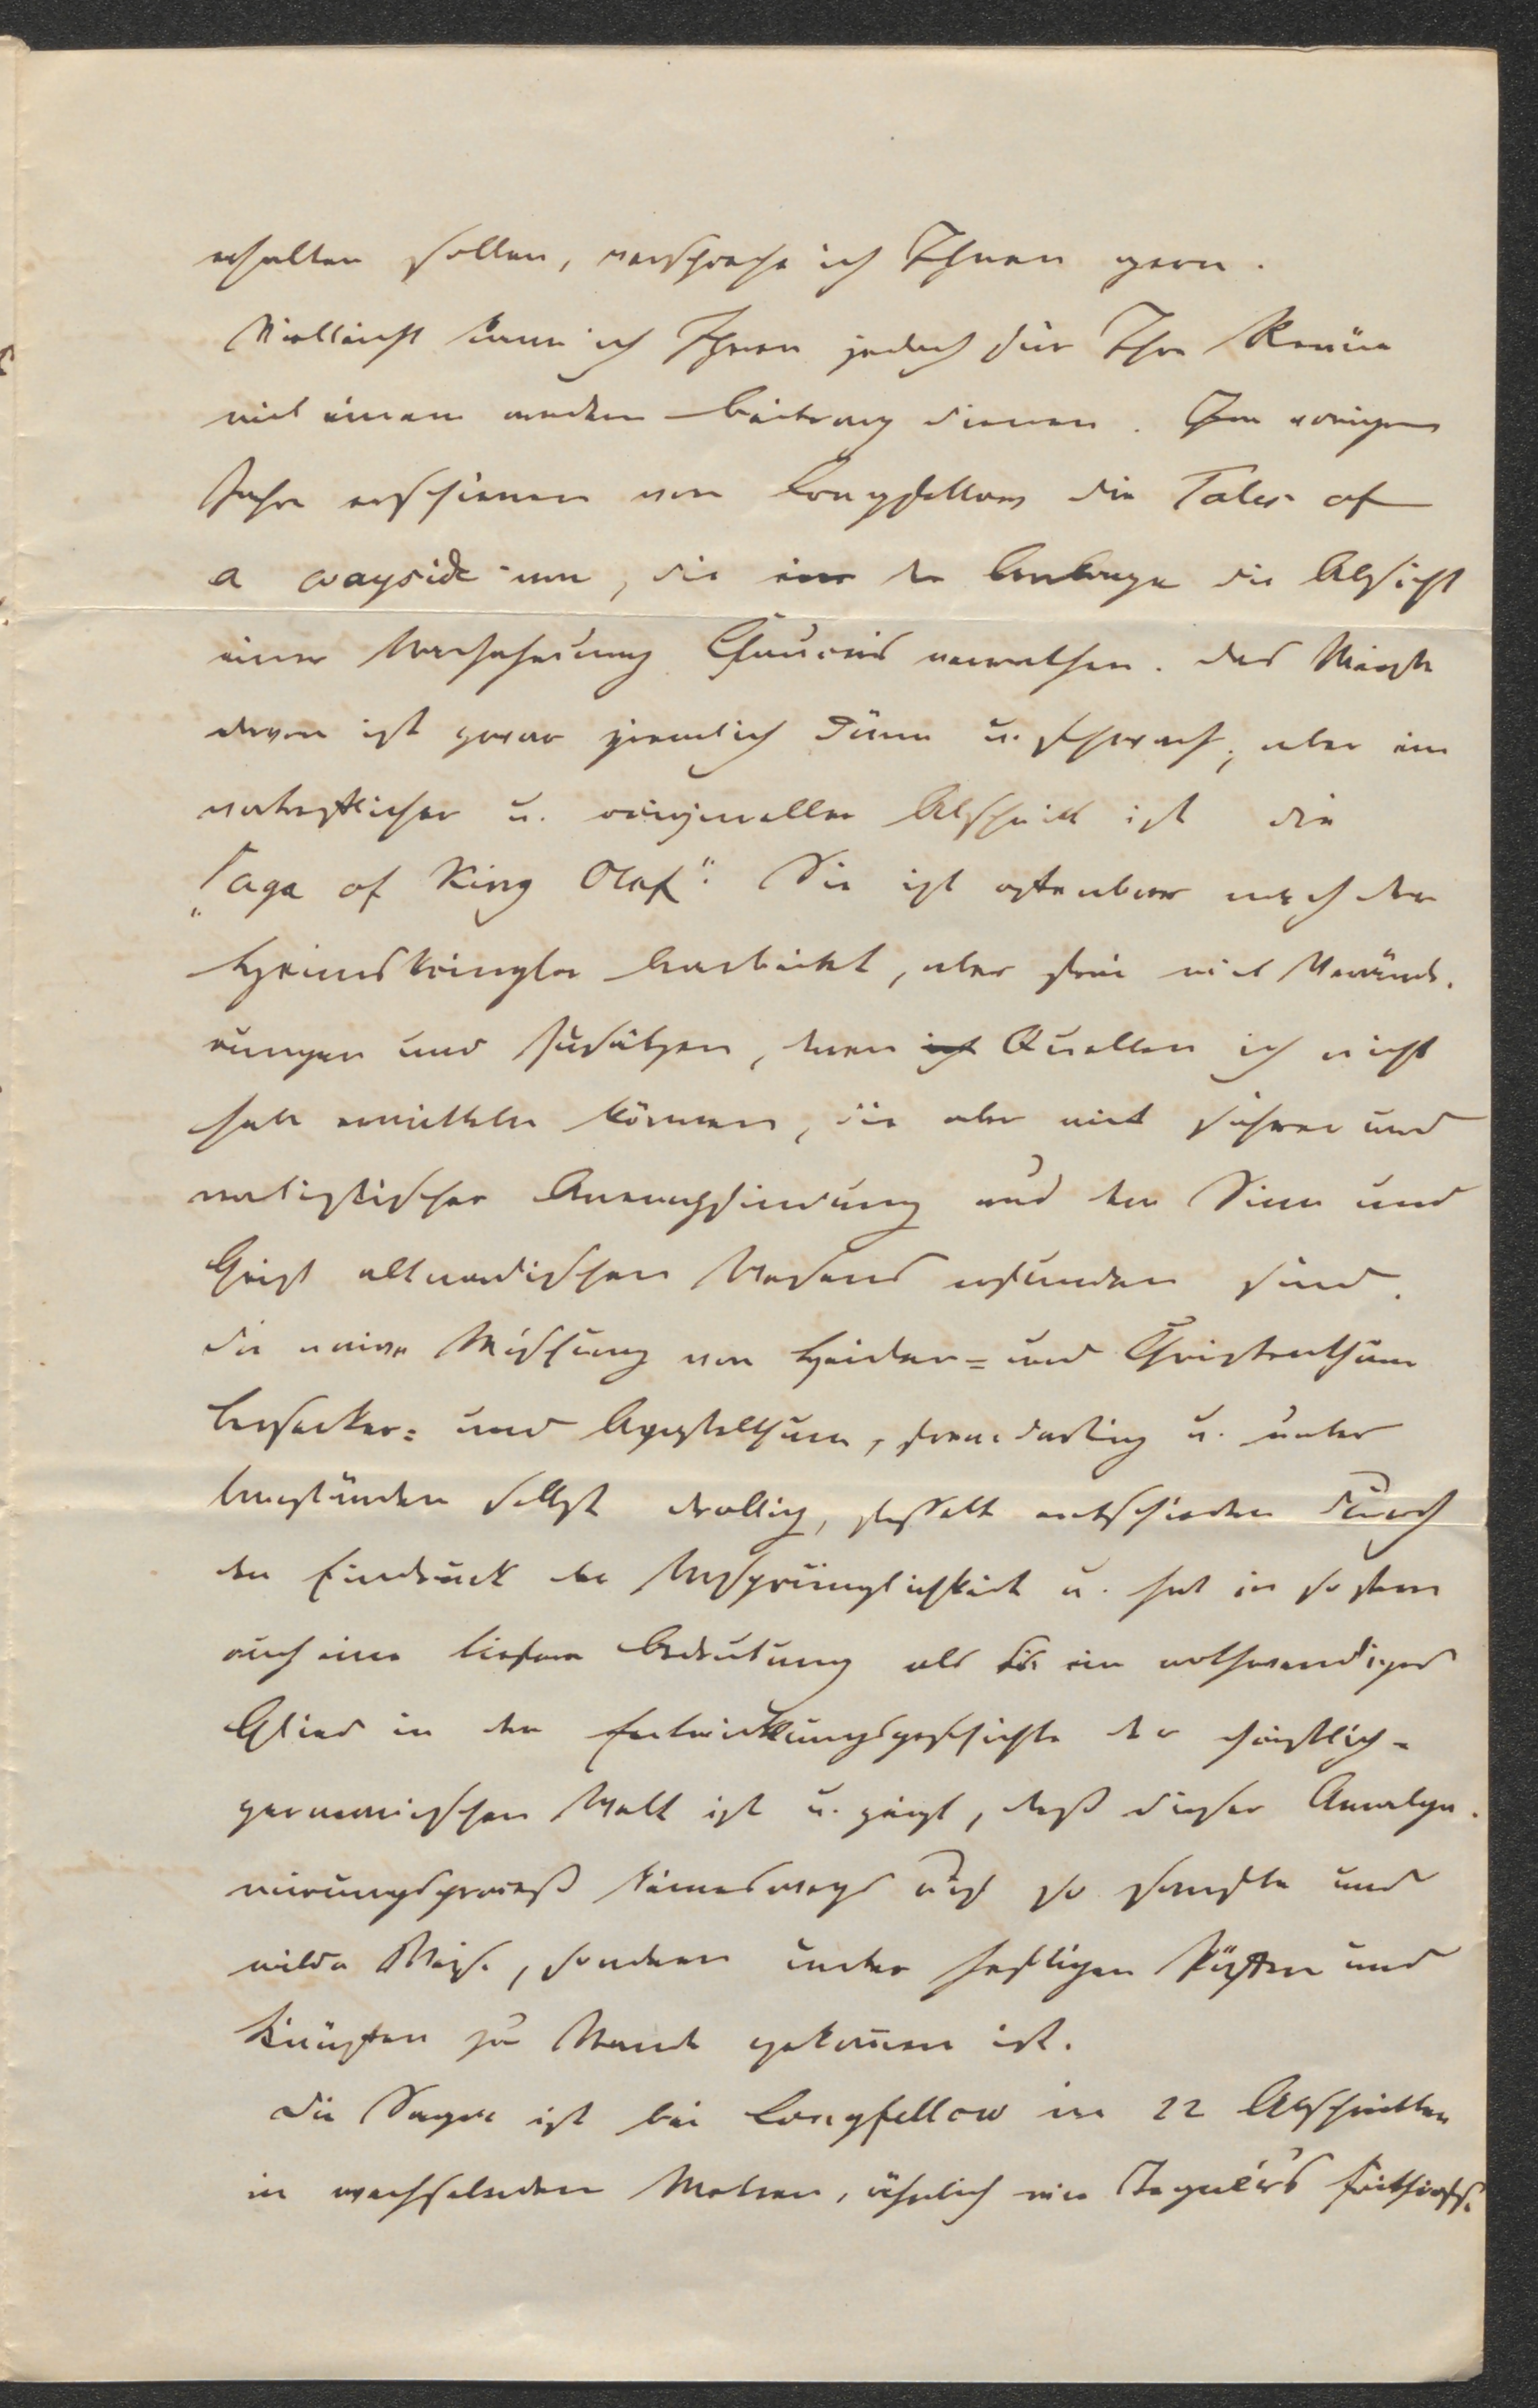 erhalten sollen, verspreche ich Ihnen gern.
Vielleicht kann ich Ihnen jedoch für Ihre Revüe
mit einem andern Beitrag dienen. Im vorigen
Jahre erschienen von Longfellow die Tales of
a wayside inn, die in der Anlage die Absicht
einer Nachahmung Chaucers verrathen. Das Meiste
davon ist zwar ziemlich dünn u. schwach, aber ein
vortrefflicher u. origineller Abschnitt ist die
„Saga of King Olaf“. Sie ist offenbar nach der
Heimskringla bearbeitet, aber frei mit Verände-
rungen und Zusätzen, deren Quellen ich nicht
habe ermitteln können, die aber mit sichrer und
realistischer Anempfindung aus dem Sinn und
Geist altnordischen Wesens erfunden sind.
Die naive Mischung von Heiden= und Christenthum
Berserker= und Apostelthum, fremdartig u. unter
Umständen selbst drollig, fesselt entschieden durch
den Eindruck der Ursprünglichkeit u. hat in so fern
auch eine tiefere Bedeutung als sie ein nothwendiges
Glied in der Entwicklungsgeschichte der christlich-
germanischen Welt ist u. zeigt, daß dieser Amalga-
mirungsproceß keineswegs auf so sanfte und
milde Weise, sondern unter heftigen Püffen und
Knüffen zu Stande gekommen ist.
Die Sage ist bei Longfellow in 22 Abschnitten
in wechselnden Metren, ähnlich wie Tegnér's Frithiofs-